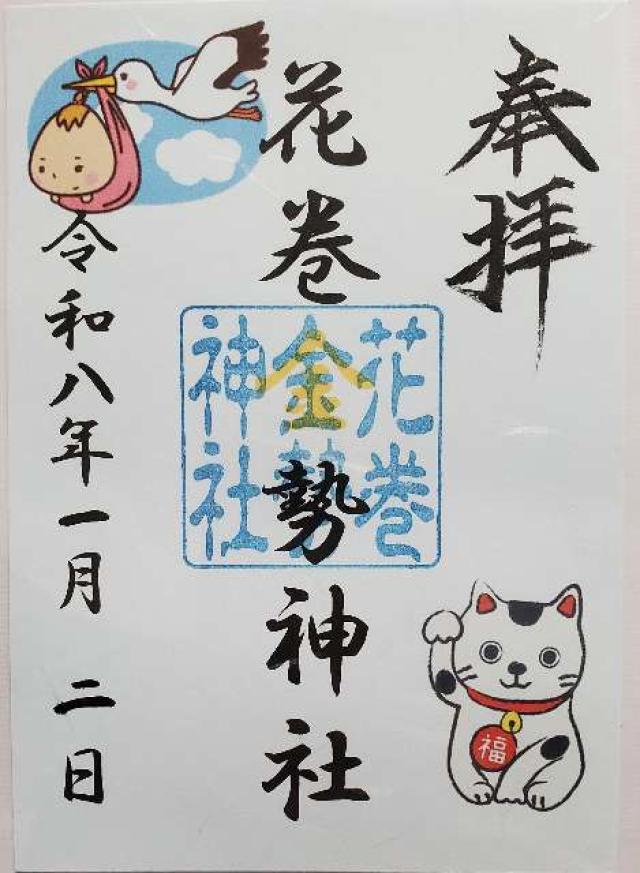 奉拝
花巻金勢神社
花巻
金勢
神社
令和八年一月二日
福